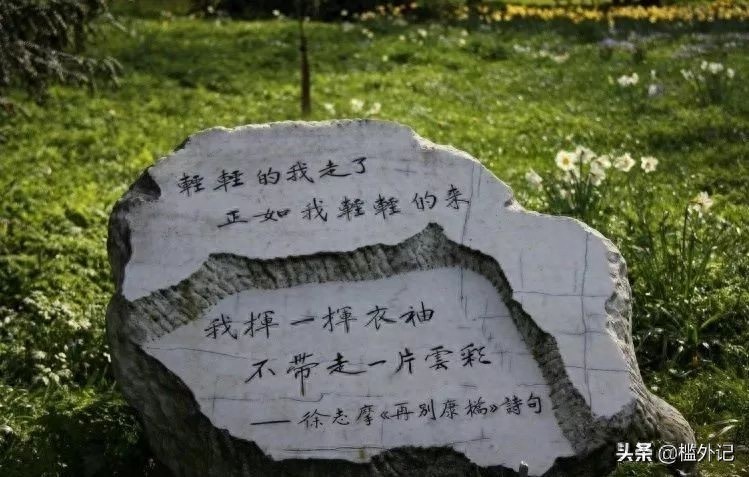 輕輕的我走了
正如我輕輕的来
我揮一揮衣袖
不帶走一片雲彩
——徐志摩《再别康橋》詩句
头条 @槛外记